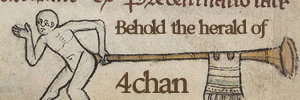 Behold the herald of
4chan